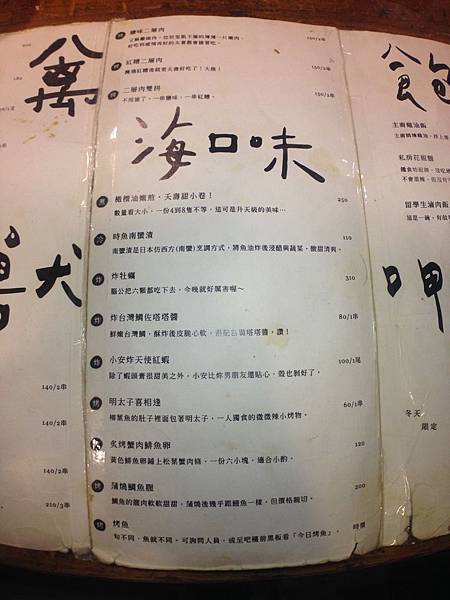 禽
140/2串
140/2串
140/2串
210/3串
獸犬
鹽味二層肉
150/2串
紅糟二層肉
醃過紅糟後就更夭壽好吃了！大推！
150/2串
二層肉雙拼
不用猜了，一串鹽味，一串紅糟。
150/2串
海口味
煎 橄欖油嫩煎，夭壽甜小卷！ 250
數量看大小，一份4到8隻不等，這可是升天級的美味…
冷 時魚南蠻漬 110
南蠻漬是日本仿西方(南蠻)烹調方式，將魚油炸後浸醋與蔬菜，微甜清爽。
炸 炸牡蠣 310
腦公把六顆都吃下去，今晚就好厲害喔～
炸 炸台灣鯛佐塔塔醬 80/1串
鮮嫩台灣鯛，酥炸後皮脆心軟，搭配自製塔塔醬，讚！
炸 小安炸天使紅蝦 100/1尾
除了蝦頭膏很甜美之外，小安比你男朋友還貼心，殼也剝好了。
烤 明太子喜相逢 60/1串
柳葉魚的肚子裡面包著明太子，一人獨食的微微辣小烤物。
烤 炙烤蟹肉鯡魚卵 120
黃色鯡魚卵鋪上松葉蟹肉條，一份六小塊，適合小酌。
烤 蒲燒鯛魚腹 200
鯛魚的腹肉軟軟甜甜，蒲燒後幾乎跟鰻魚一樣，但價格親切。
烤 烤魚 時價
旬不同，魚就不同。可詢問人員，或至吧檯前黑板看「今日烤魚」。
飽
主廚雞油飯
私房花椒麵
留學生滷肉飯
呷
冬天
限定